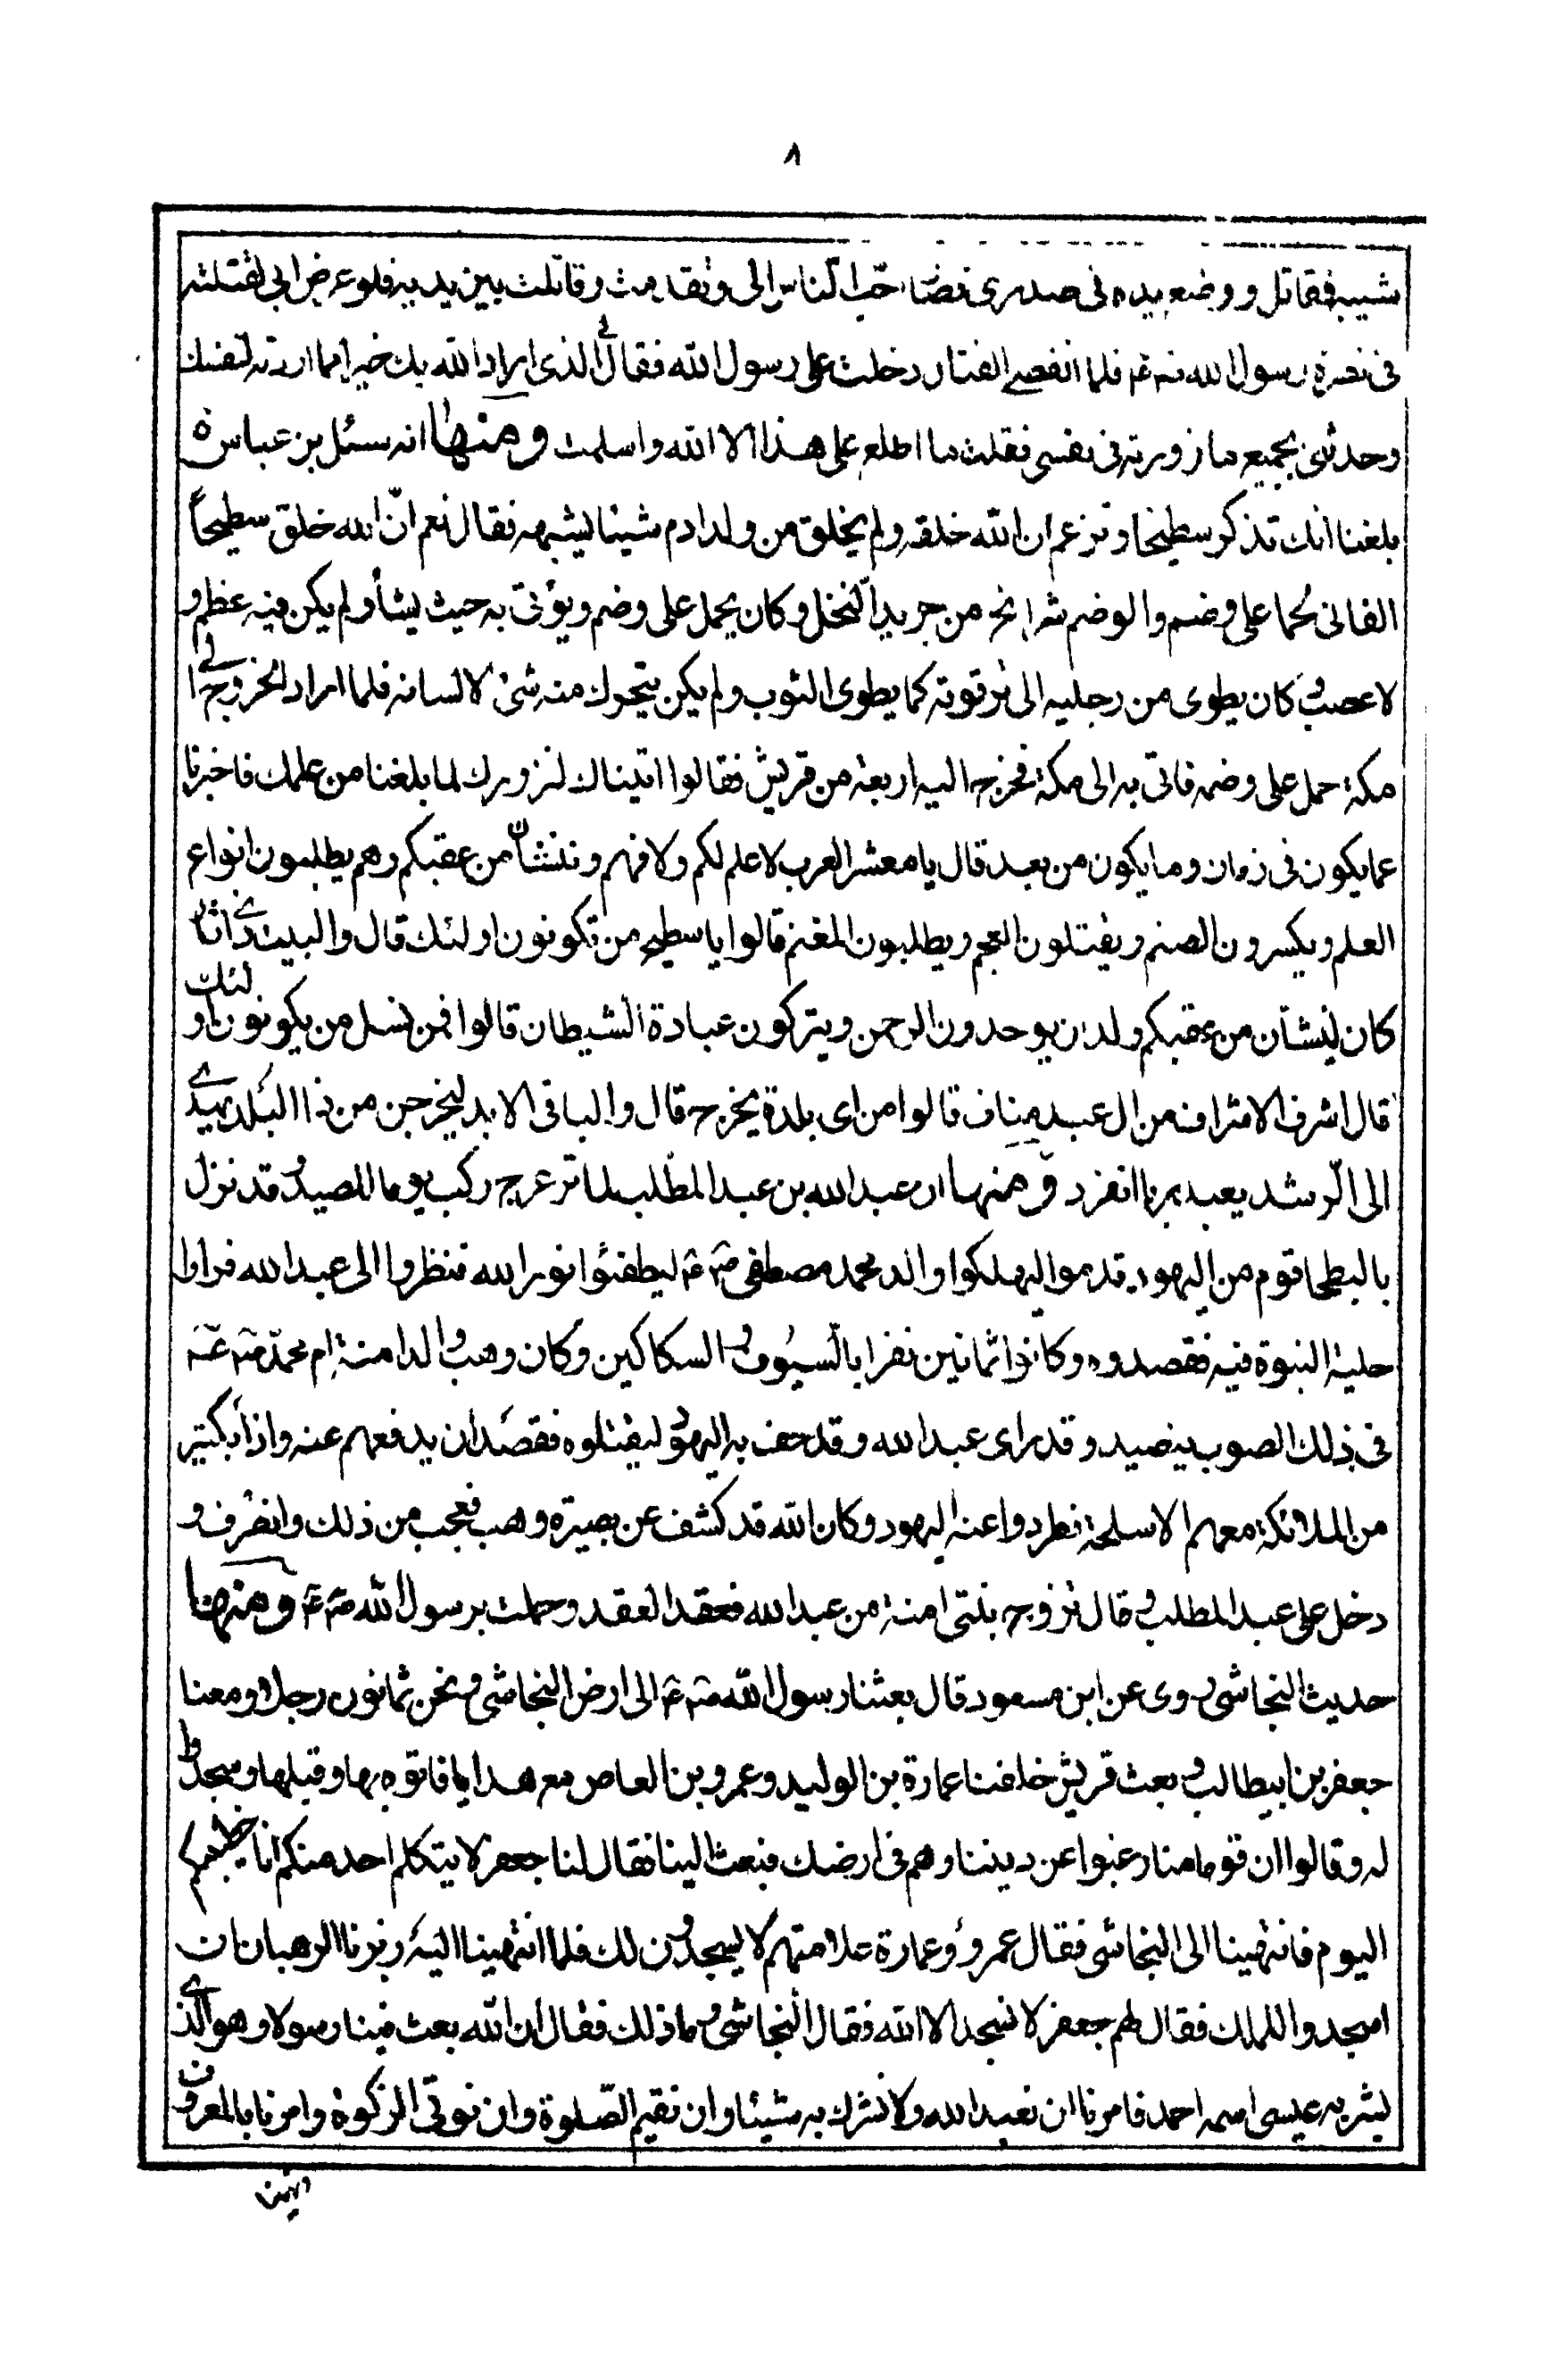 ٨
شيبه فقاتل ووضع يده فى صدرى فصار احب الناس الى وتقدمت وقاتلت بين يديه فلو عرض ابى لقتلته
فى نصرة رسول الله فلما انقضى القتال دخلت على رسول الله فقال لى الذى اراد الله بك خير مما اردته لنفسك
وحدثنى بجميع ما زورته فى نفسى فقلت ما اطلع على هذا الا الله واسلمت ومنها انه سئل بن عباس
بلغنا انك تذكر سطيحا وتزعم ان الله خلقه ولم يخلق من ولد ادم شيئا يشبهه فقال نعم ان الله خلق سطيحاً
الغانى لحما على وضم والوضم شرايح من جريد النخل وكان يحمل على وضم ويؤتى به حيث يشاء ولم يكن فيه عظم و
لا عصب وكان يطوى من رجليه الى ترقوته كما يطوى الثوب ولم يكن يتحرك منه شئ الا لسانه فلما اراد الخروج الى
مكة حمل على وضمه فاتى به الى مكة فخرج اليه اربعة من قريش فقالوا اتيناك لنزورك لما بلغنا من علمك فاخبرنا
عما يكون فى زمان وما يكون من بعد قال يا معشر العرب لا علم لكم ولا فهم وننشأن من عقبكم وهم يطلبون انواع
العلم ويكسرون الصنم ويقتلون العجم ويطلبون المغنم قالوا يا سطيح من تكونون اولئك قال والبيت ذى اثار
كان لينشأن من عقبكم ولدان يوحدون الرحمن ويتركون عبادة الشيطان قالوا فمن نسل من يكونون اولئك
قال اشرف الاشراف من ال عبد مناف قالوا من اى بلدة يخرج قال والباقى الابد ليخرجن من ذا البلد يهدى
الى الرشد يعبد ربا انفرد ومنها ان عبد الله بن عبد المطلب لما ترعرع ركب يوما للصيد وقد نزل
بالبطحا قوم من اليهود قدموا ليهلكوا والد محمد مصطفى ص ع ليطفئوا نور الله فنظروا الى عبد الله فراوا
حلية النبوة فيه فقصدوه وكانوا ثمانين نفرا بالسيوف والسكاكين وكان وهب والد امنة ام محمد ص ع
فى ذلك الصوب يصيد وقد راى عبد الله وقد حف به اليهود ليقتلوه فقصد ان يدفعهم عنه واذا بكثير
من الملائكة معهم الاسلحة فطردوا عنه اليهود وكان الله قد كشف عن بصيرة وهب فعجب من ذلك وانصرف و
دخل على عبد المطلب وقال تزوج بنتى امنة من عبد الله فعقد العقد وحملت برسول الله ص ع ومنها
حديث النجاشى روى عن ابن مسعود قال بعثنا رسول الله ص ع الى ارض النجاشى ونحن ثمانون رجلا ومعنا
جعفر بن ابيطالب وبعث قريش خلفنا عمارة بن الوليد وعمرو بن العاص مع هدايا فاتوه بها وقبلها وسجدوا
له وقالوا ان قوما منا رغبوا عن ديننا وهم فى ارضك فبعث الينا فقال لنا جعفر لا يتكلم احد منكم انا خطيبكم
اليوم فانتهينا الى النجاشى فقال عمرو وعمارة علامتهم لا يسجدون لك فلما انتهينا اليه زبرنا الرهبان ان
اسجدوا للملك فقال لهم جعفر لا نسجد الا الله فقال النجاشى وما ذلك فقال ان الله بعث فينا رسولا وهو الذى
بشر به عيسى اسمه احمد فامرنا ان نعبد الله ولا نشرك به شيئا وان نقيم الصلوة وان نؤتى الزكوة وامرنا بالمعروف